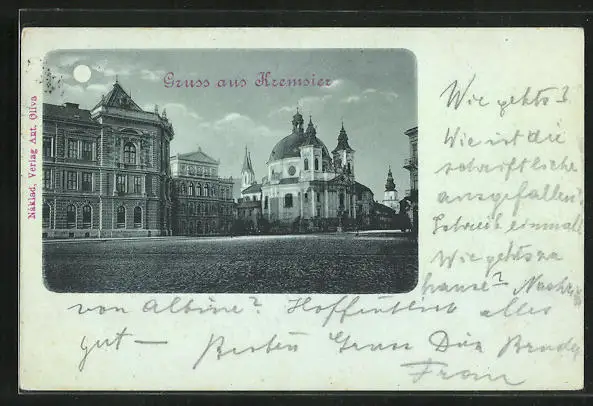 Gruss aus Kremsier
Náklad, Verlag Ant. Oliva
Wie gehts?
Wie ist die
schriftliche
ausgefallen?
Schreib einmal!
Wie gehts zu
hause? Nachr.
von Albine? Hoffentlich alles
gut — Besten Gruss Dein Bruder
Franz